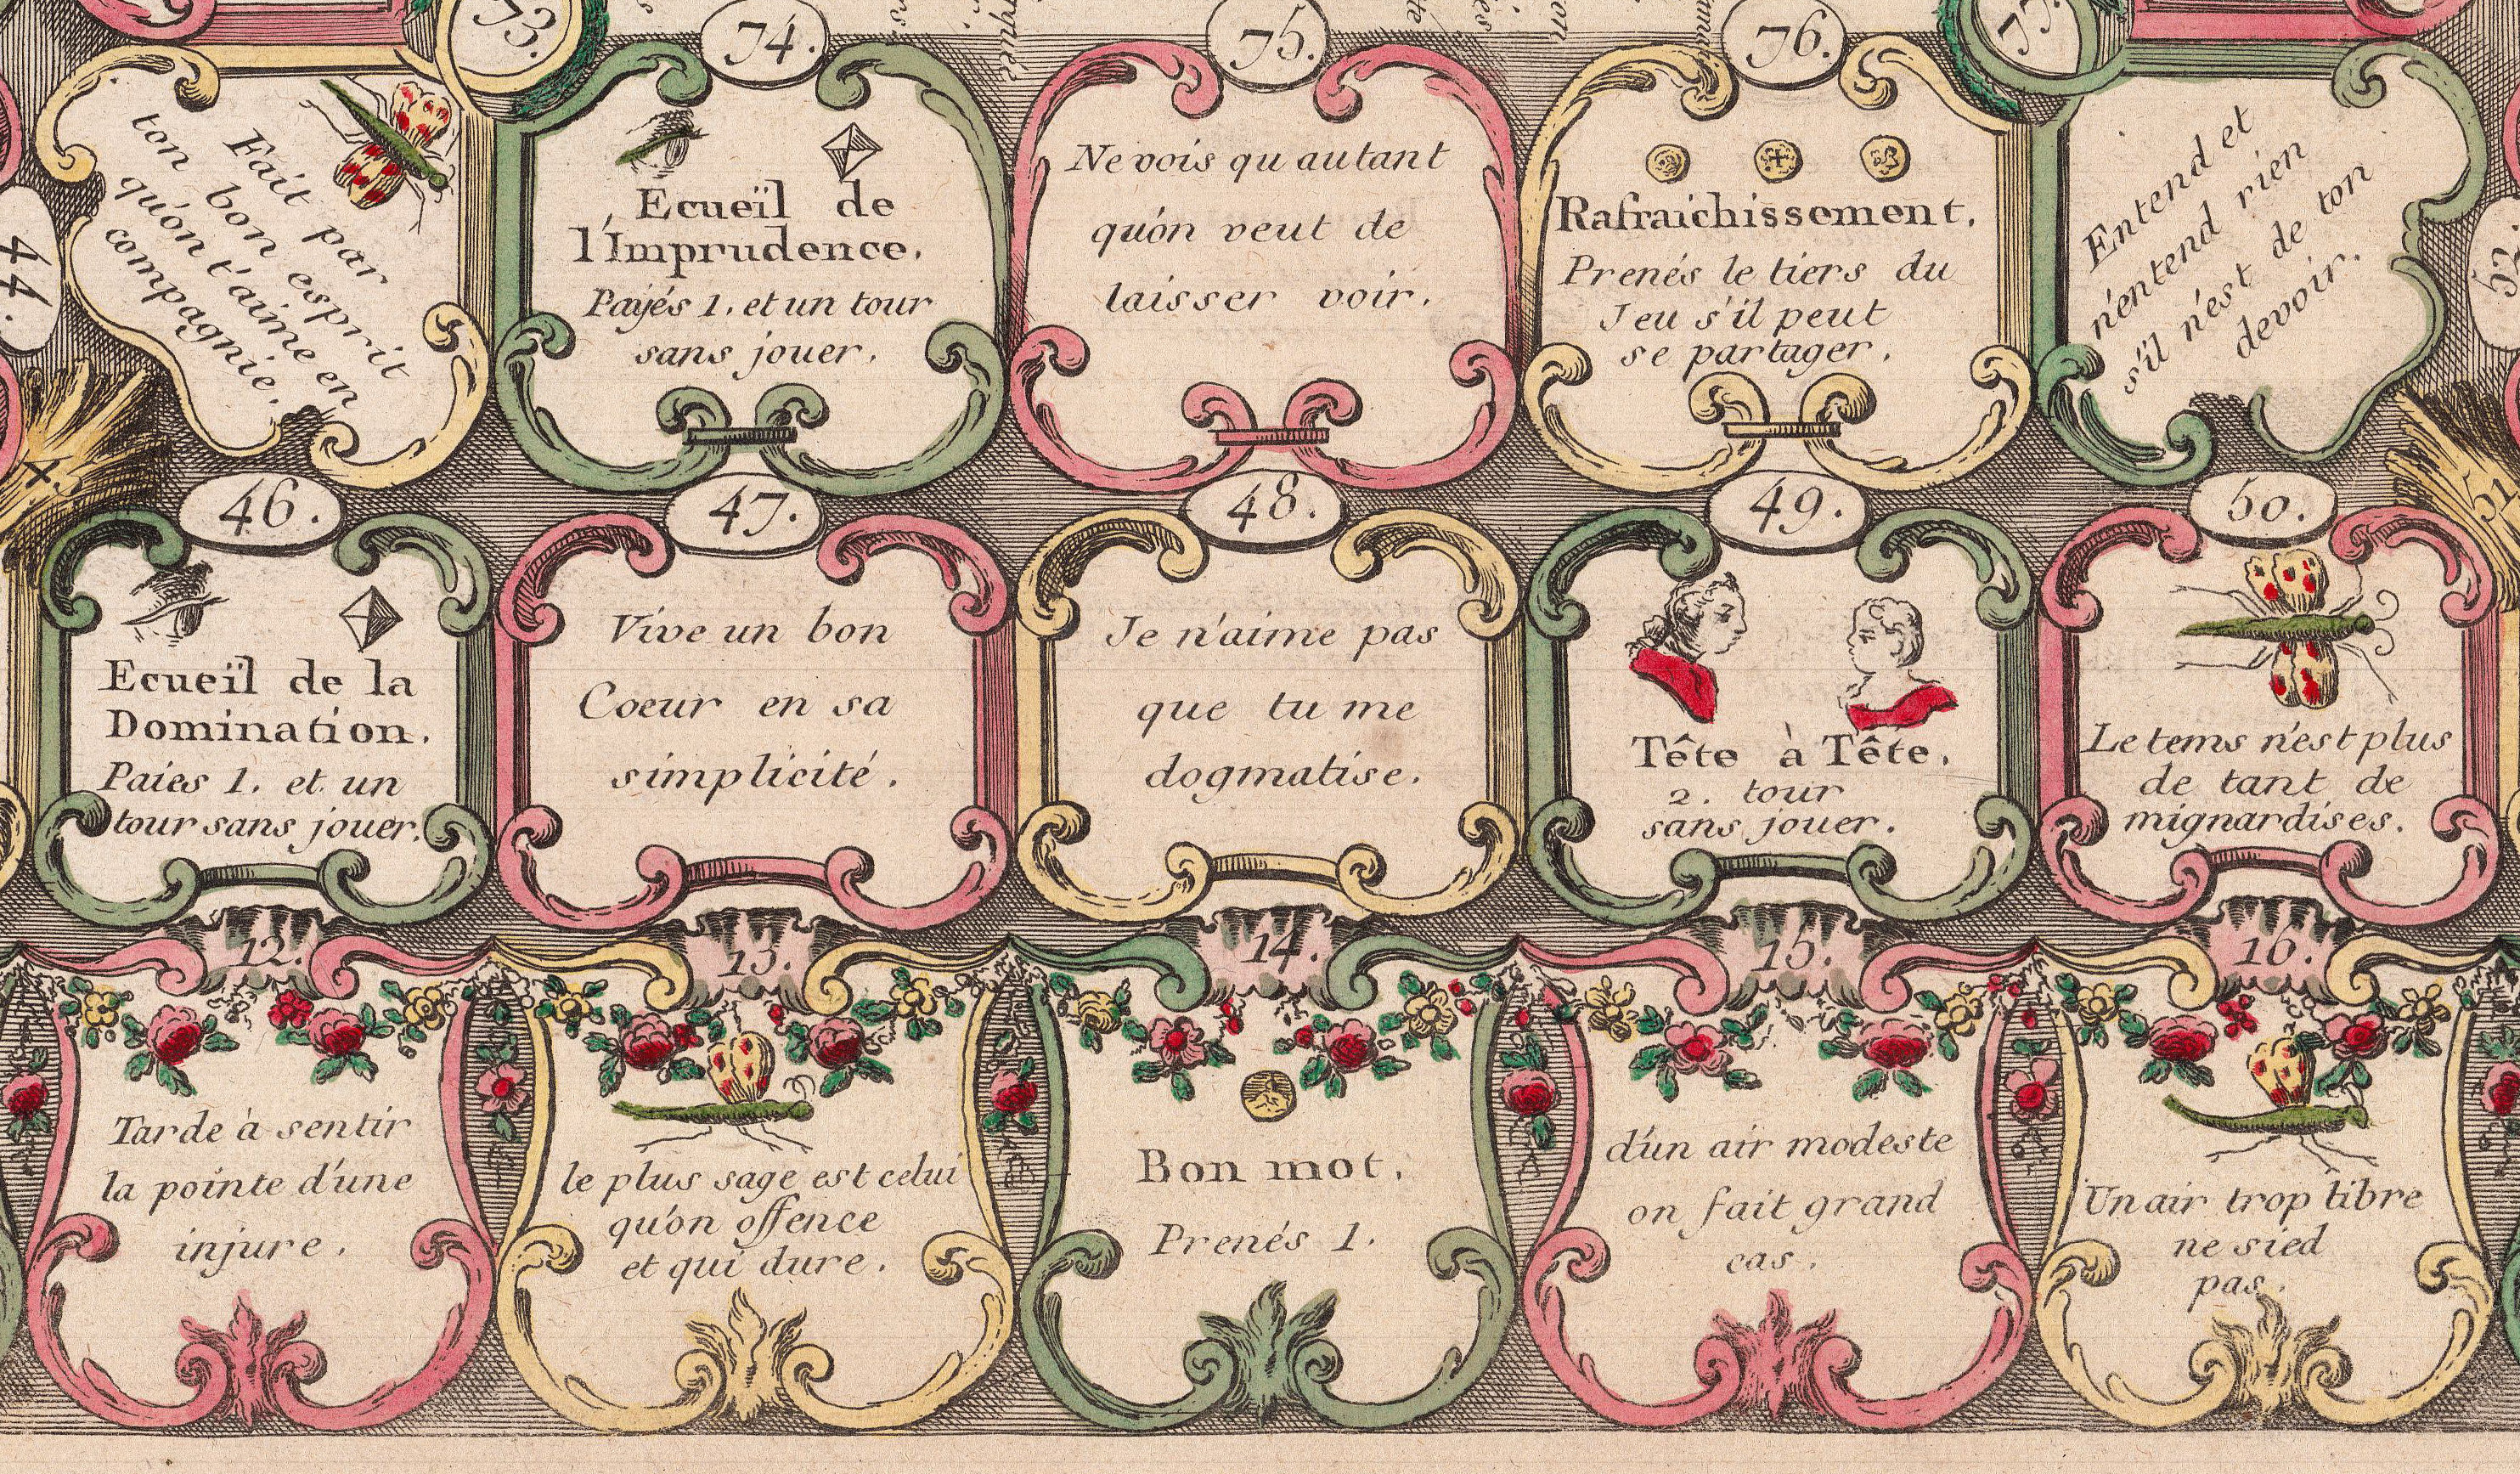 73.
Fait par
ton bon esprit
qu'on t'aime en
compagnie.
74.
Ecueïl de
l'Imprudence.
Payés 1. et un tour
sans jouer.
75.
Ne vois qu autant
qu'on veut de
laisser voir.
76.
Rafraichissement.
Prenés le tiers du
Jeu s'il peut
se partager.
77.
Entend et
n'entend rien
s'il n'est de ton
devoir.
44.
46.
Ecueïl de la
Domination.
Paies 1. et un
tour sans jouer.
47.
Vive un bon
Coeur en sa
simplicité.
48.
Je n'aime pas
que tu me
dogmatise.
49.
Tête à Tête.
2. tour
sans jouer.
50.
Le tems n'est plus
de tant de
mignardises.
12.
Tarde à sentir
la pointe d'une
injure.
13.
le plus sage est celui
qu'on offence
et qui dure.
14.
Bon mot.
Prenés 1.
15.
d'un air modeste
on fait grand
cas.
16.
Un air trop libre
ne sied
pas.